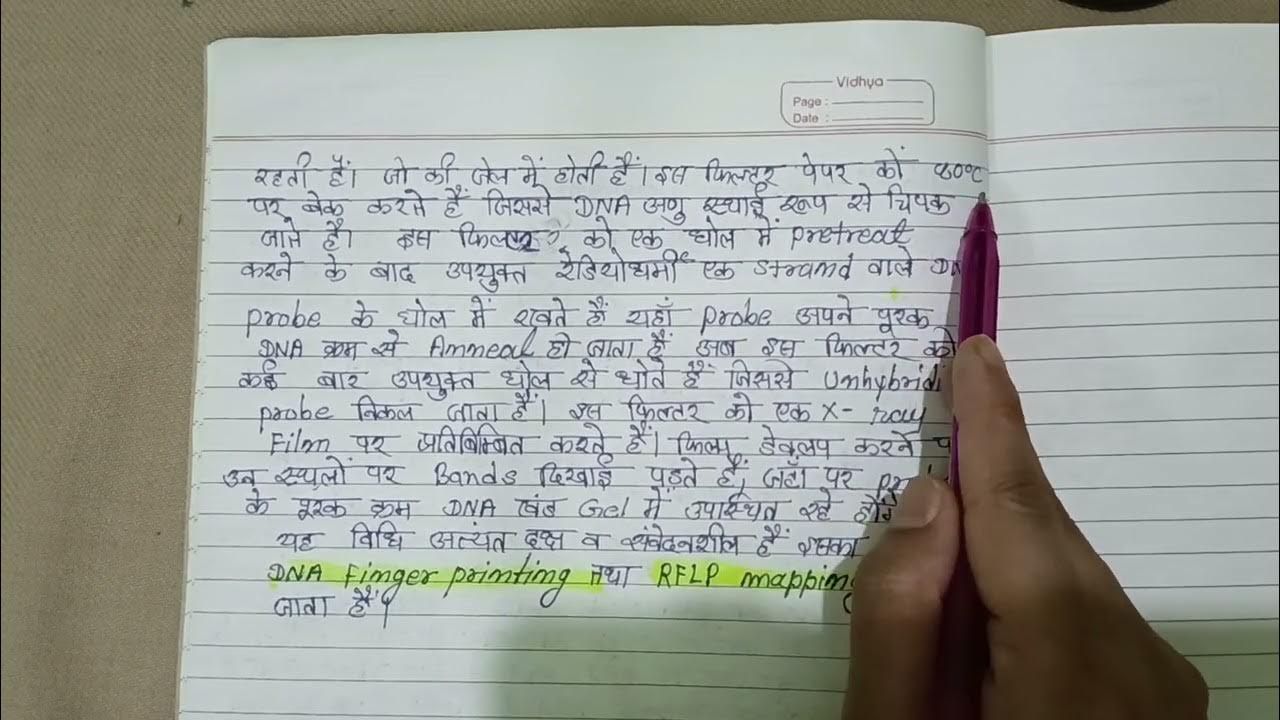 Vidhya
Page :
Date :
रहती हैं। जो की जेल में होती हैं। इस फिल्टर पेपर कों 80°C
पर बेक करते हैं जिससे DNA अणु स्थाई रूप से चिपक
जाते है। इस को एक घोल में pretreat
करने के बाद उपयुक्त रेडियोधर्मी एक strand वाले DN
probe के घोल में रखते हैं यहाँ probe अपने पूरक
DNA क्रम से Anneal हो जाता हैं अब इस फिल्टर को
कई बार उपयुक्त घोल से धोते हैं जिससे Unhybridi
probe निकल जाता हैं। इस फिल्तर को एक X-ray
Film पर प्रतिबिम्बित करते हैं। फिल्म डेवलप करने प
उन स्थलों पर Bands दिखाई पड़ते हैं, जहाँ पर pr
के पूरक क्रम DNA खंड Gel में उपस्थित रहे होंगे
यह विधि अत्यंत दक्ष व संवेदनशील हैं इसका
DNA Finger printing तथा RFLP mapping
जाता हैं।